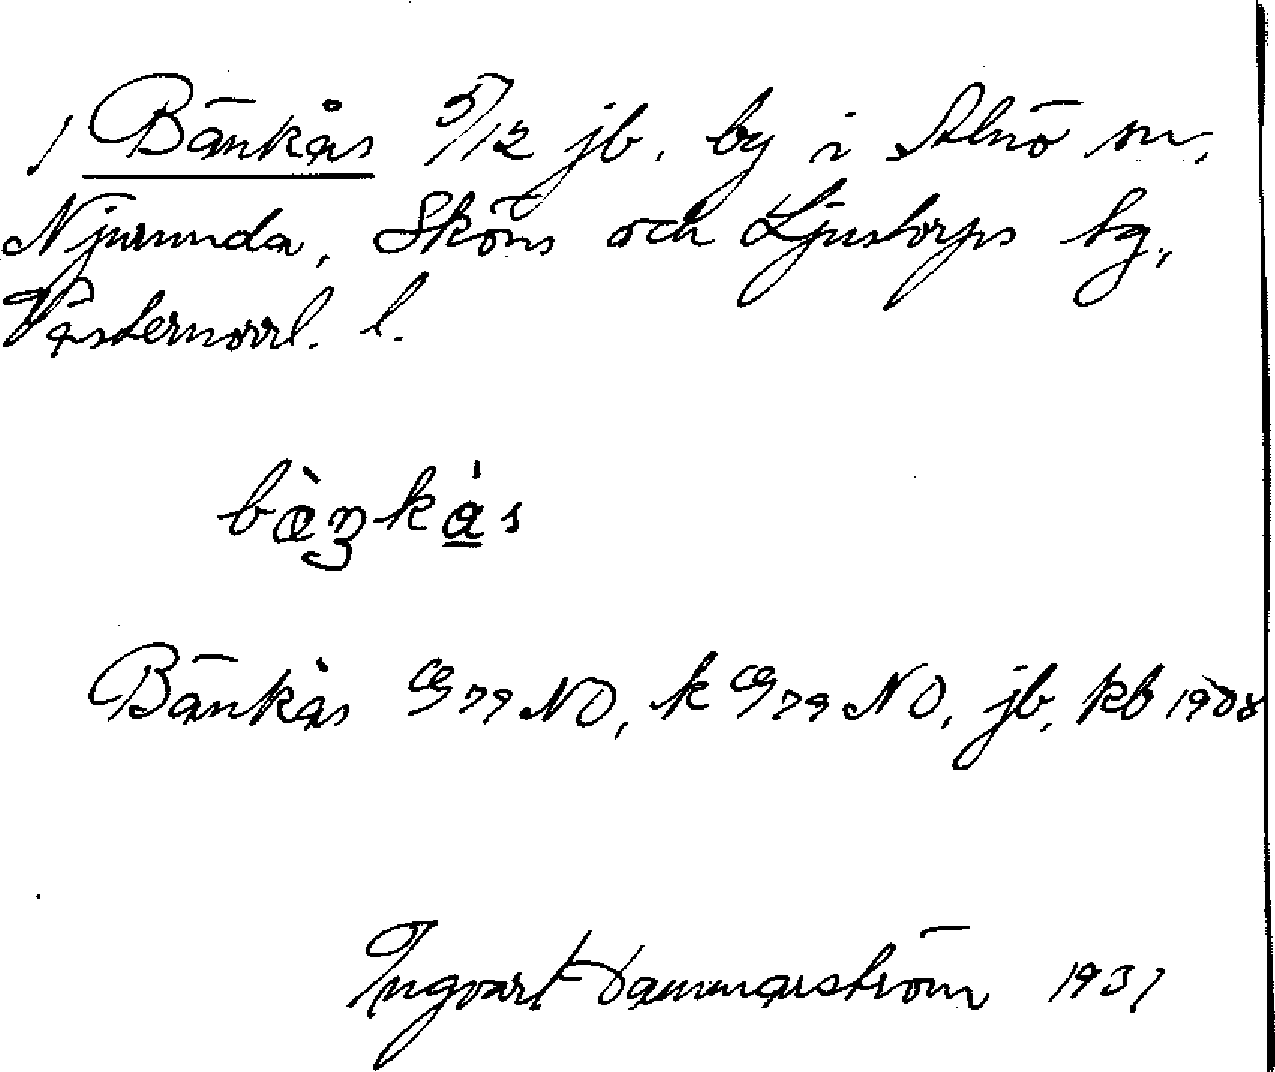 1 Bänkås 5/12 jb. by i Alnö sn,
Njurunda, Sköns och Ljustorps tg.,
Västernorrl. l.
bæ̀ŋkås
Bänkås G79NO, k G79NO, jb, kb 1908
Ingvart Dammarström 1931